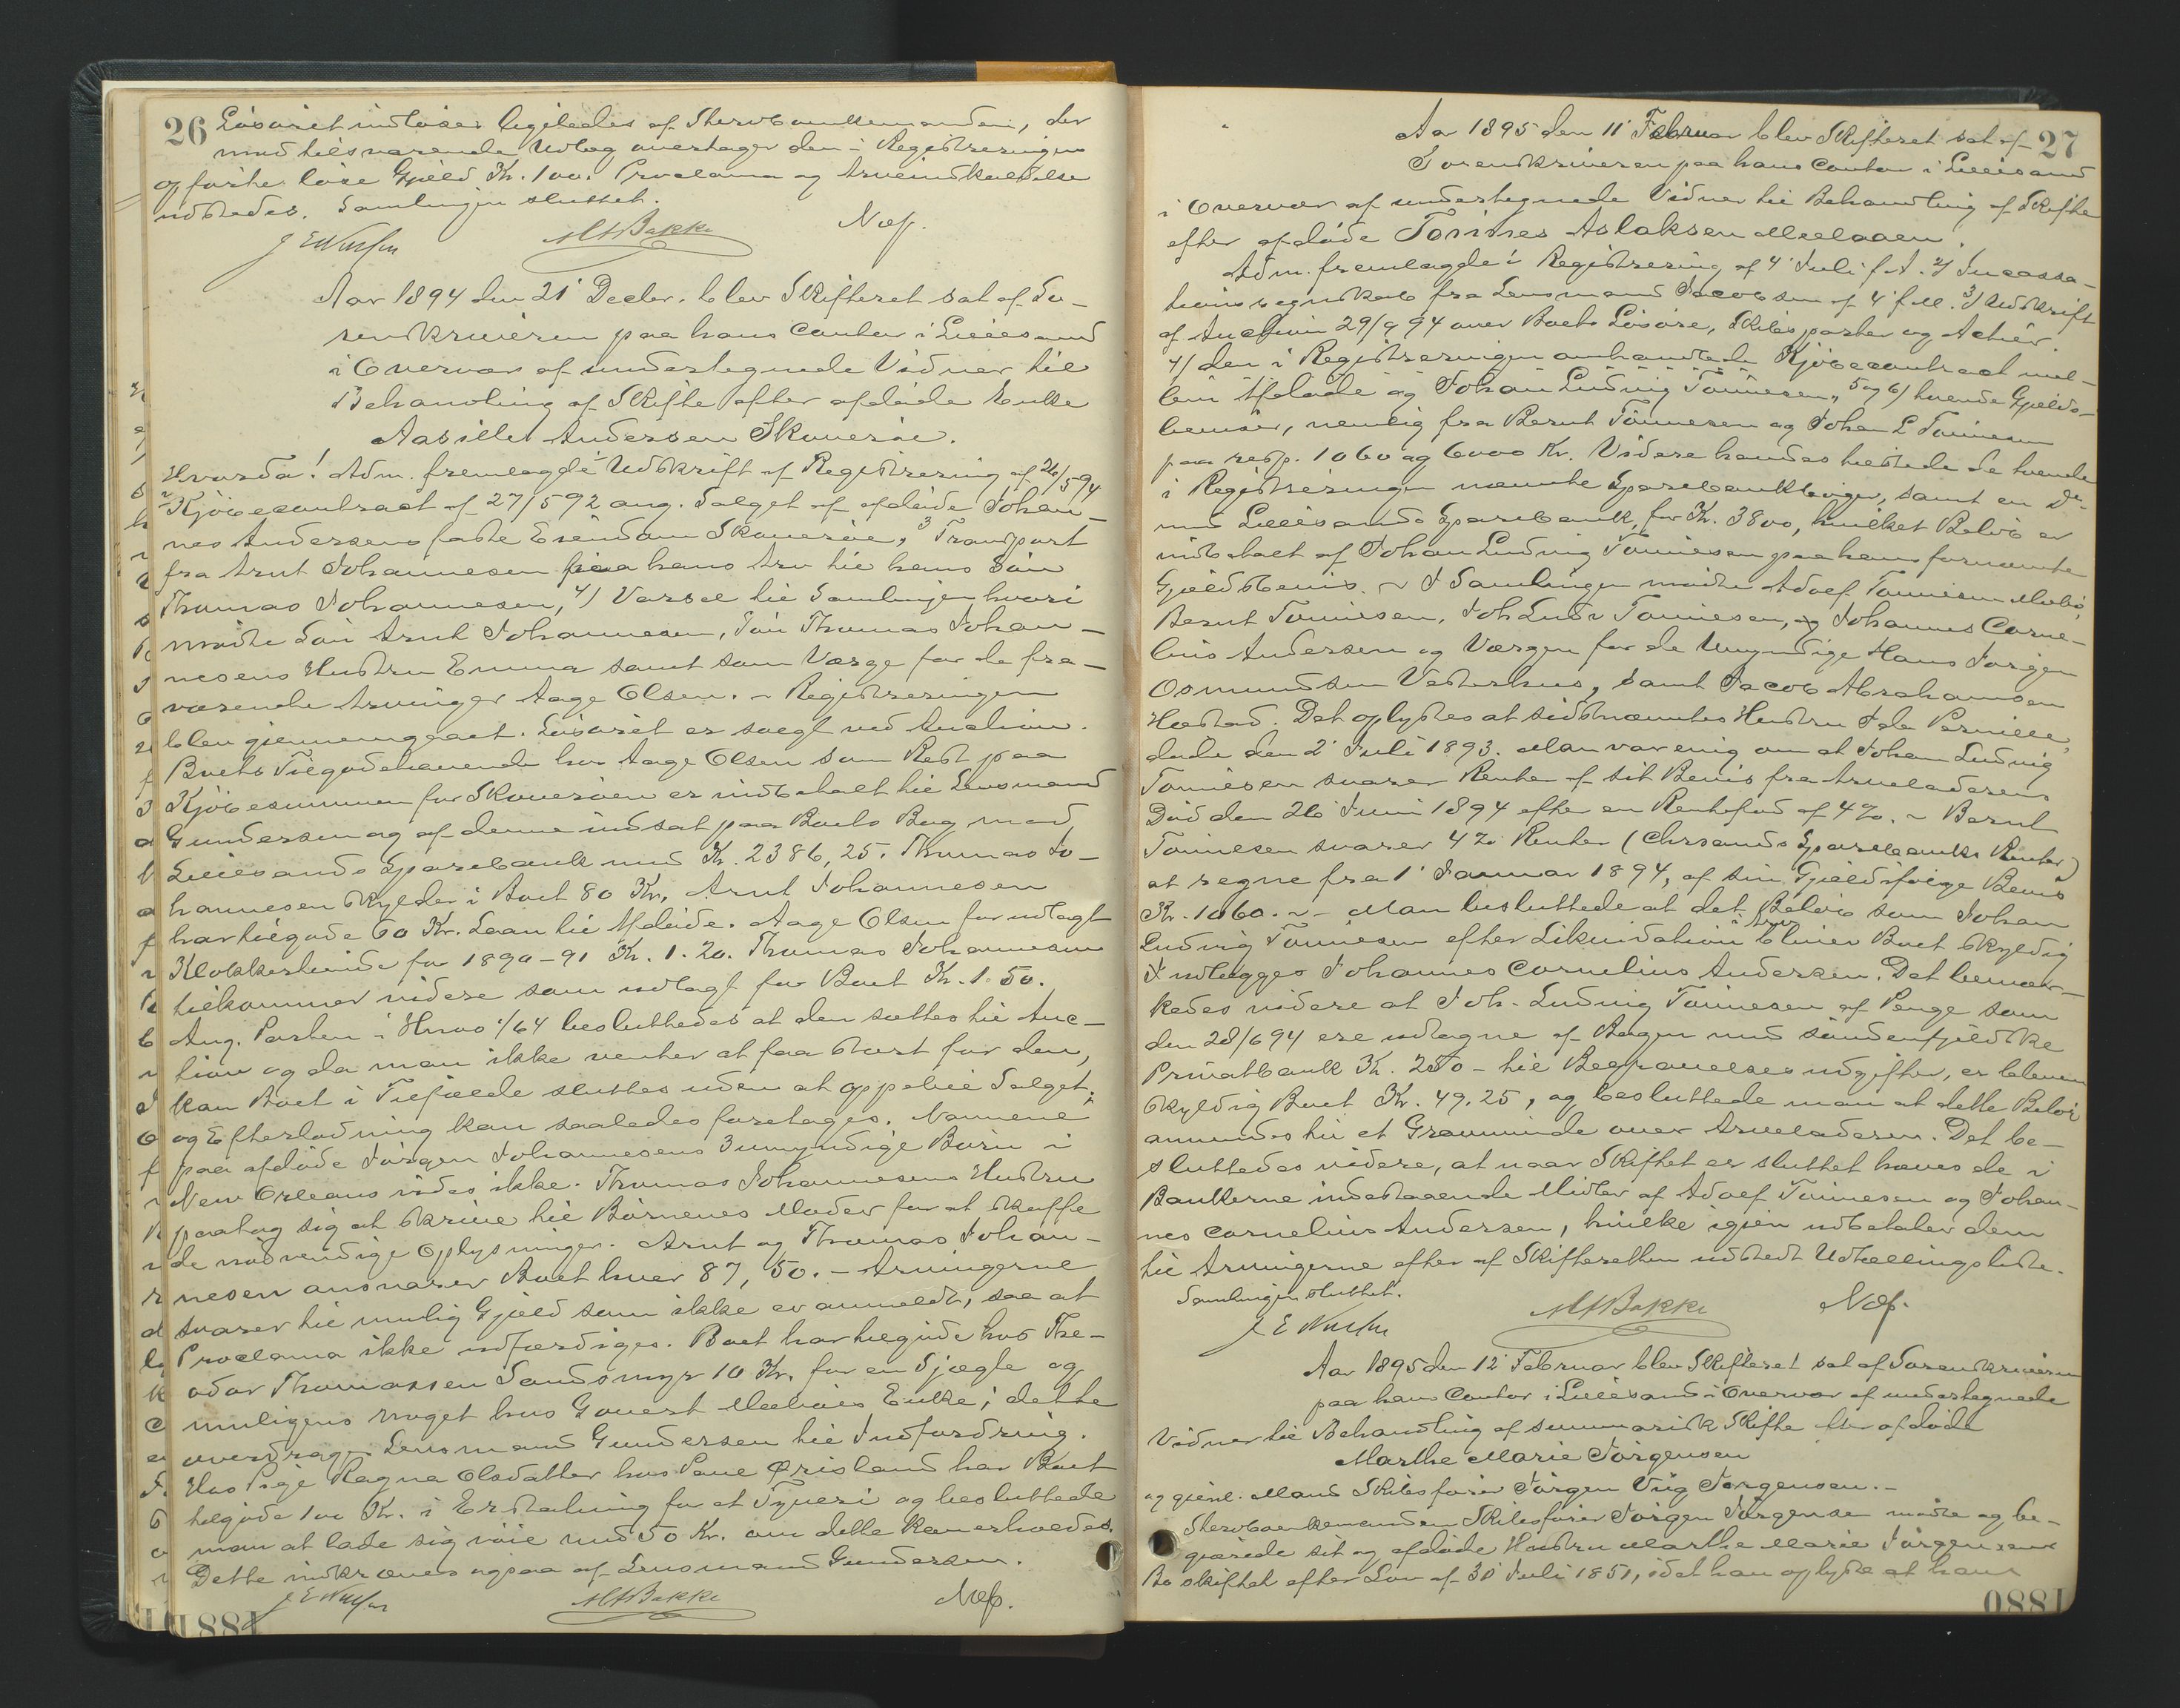 26
Løsøret indløses ligeledes af Stervboenkemanden, der
mod tilsvarende Udlæg overtager den i Registreringen
opførte løse Gjæld Kr. 100. Proclama og Arveindkaldelse
udstedes. Samlingen sluttet.
AABakke Næs.
Aar 1894 den 21 Decbr. blev Skifteret sat af So-
renskriveren paa hans Contor i Lillesand
i Overvær af undertegnede Vidner til
Behandling af Skifte efter afdøde Enke
Aasille Andersen Skauerøe.
Hvorda! Adm. fremlagde 1 Udskrift af Registrering af 26/5 94
2 Kjøbecontract af 27/5 92 ang. Salget af afdøde Johan-
nes Andersens faste Eiendom Skauerøe, 3 Transport
fra Arnt Johannesen paa hans Arv til hans Søn
Thomas Johannesen, 4) Varsel til Samlingen hvori
mødte Søn Arnt Johannesen, Søn Thomas Johan-
nesens Hustru Emma samt som Værge for de fra-
værende Arvinger Aage Olsen. - Registreringen
blev gjennemgaaet. Løsøret er solgt ved Auction.
Boets Tilgodehavende hos Aage Olsen som Rest paa
Kjøbesummen for Skauerøen er indbetalt til Lensmand
Gundersen og af denne indsat paa Boets Bog med
Lillesands Sparebank med Kr. 2386,25. Thomas Jo-
hannesen skylder i Boet 80 Kr, Arnt Johannesen
har tilgode 60 Kr. Laan til Afdøde. Aage Olsen for udlagt
Klokkertiende for 1890-91 Kr. 1.20. Thomas Johannesen
tilkommer videre som udlagt for Boet Kr. 1.50.
Ang. Parten i 1/64 besluttedes at den sættes til Auc-
tion og da man ikke venter at faa stort for den,
kan Boet i Tilfælde sluttes uden at oppebie Salget,
og Efterlodning kan saaledes foretages. Navnene
paa afdøde Jørgen Johannesens 3 umyndige Børn i
New Orleans vides ikke. Thomas Johannesens Hustru
paatog sig at skrive til Børnenes Moder for at skaffe
de nødvendige Oplysninger. Arnt og Thomas Johan-
nesen ansvarer Boet hver 87,50. - Arvingerne
svarer til mulig Gjæld som ikke er anmeldt, saa at
Proclama ikke udfærdiges. Boet har tilgode hos The-
odor Thomassen Sandsmyr 10 Kr. for en Sjægte og
muligens noget hos Gouert Mæløies Enke; dette
overdrages Lensmand Gundersen til Indfordring.
Hos Pige Ragna Olsdatter hos Paul Ørisland har Boet
tilgode 100 Kr. i Erstatning for et Tyveri og besluttede
man at lade sig nøie med 50 Kr. om dette kan erholdes.
Dette indkræves ogsaa af Lensmand Gundersen.
AABakke Næs.
27
Aar 1895 den 11 Februar blev Skifteret sat af
Sorenskriveren paa hans Contor i Lillesand
i Overvær af undertegnede Vidner til Behandling af Skifte
efter afdøde Tønnes Aslaksen
Adm. fremlagde 1 Registrering af 4 Juli f.A. 2) Incassa-
tionsregnskab fra Lensmand Jacobsen af 4 f.M. 3) Udskrift
af Auction 29/9 94 over Boets Løsøre, Skibsparter og Actier
4) den i Registreringen omhandlede Kjøbecontract mel-
lem Afdøde og Johan Ludvig Tønnesen, 5 og 6) tvende Gjælds-
beviser, nemlig fra Bernt Tønnesen og Johan L Tønnesen
paa resp. 1060 og 6000 Kr. Videre havdes tilstede de tvende
i Registreringen nævnte Sparebankbøger, samt en Do
med Lillesands Sparebank, for Kr. 3800, hvilket Beløb er
indbetalt af Johan Ludvig Tønnesen paa hans fornævnte
Gjældsbevis. ~ I Samlingen mødte Adolf Tønnesen
Bernt Tønnesen, Joh Ludv Tønnesen, Johannes Corne-
lius Andersen og Værgen for de Umyndige Hans Jørgen
Osmundsen Vesterhus, samt Jacob Abrahamsen
Hæstad. Det oplystes at sidstnævntes Hustru Ida Pernille
døde den 2 Juli 1893. Man var enig om at Johan Ludvig
Tønnesen svarer Renter af sit Bevis fra Arveladerens
Død den 26 Juni 1894 efter en Rentefod af 4%. ~ Bernt
Tønnesen svarer 4% Renter (Chrsands Sparebanks Renter)
at regne fra 1 Januar 1894, af sin Gjæld ifølge Bevis
Kr. 1060. ~ Man besluttede at det Beløb som Johan
Ludvig Tønnesen efter Likvidation i Arv bliver Boet skyldig
udlægges Johannes Cornelius Andersen. Det bemær-
kedes videre at Joh. Ludvig Tønnesen af Penge som
den 28/6 94 ere udtagne af Bogen med søndenfjeldske
Privatbank Kr. 250 - til Begravelsesudgifter, er bleven
skyldig Boet Kr. 49.25, og besluttede man at dette Beløb
anvendes til et Gravminde over Arveladeren. Det be-
sluttedes videre, at naar Skiftet er sluttet hæves de i
Bankerne indestaaende Midler af Adolf Tønnesen og Johan-
nes Cornelius Andersen, hvilke igjen udbetaler dem
til Arvingerne efter af Skifteretten udstedt Udtællingsliste.
Samlingen sluttet.
AABakke Næs.
Aar 1895 den 12 Februar blev Skifteret sat af Sorenskriveren
paa hans Contor i Lillesand i Overvær af undertegnede
Vidner til Behandling af summarisk Skifte efter afdøde
Marthe Marie Jørgensen
og gjenl. Mand Skibsfører Jørgen Vig Jørgensen. -
Stervboenkemanden Skibsfører Jørgen Jørgensen mødte og be-
gjærede sit og afdøde Hustru Marthe Marie Jørgensens
Bo skiftet efter Lov af 30 Juli 1851, idet han oplyste at hans